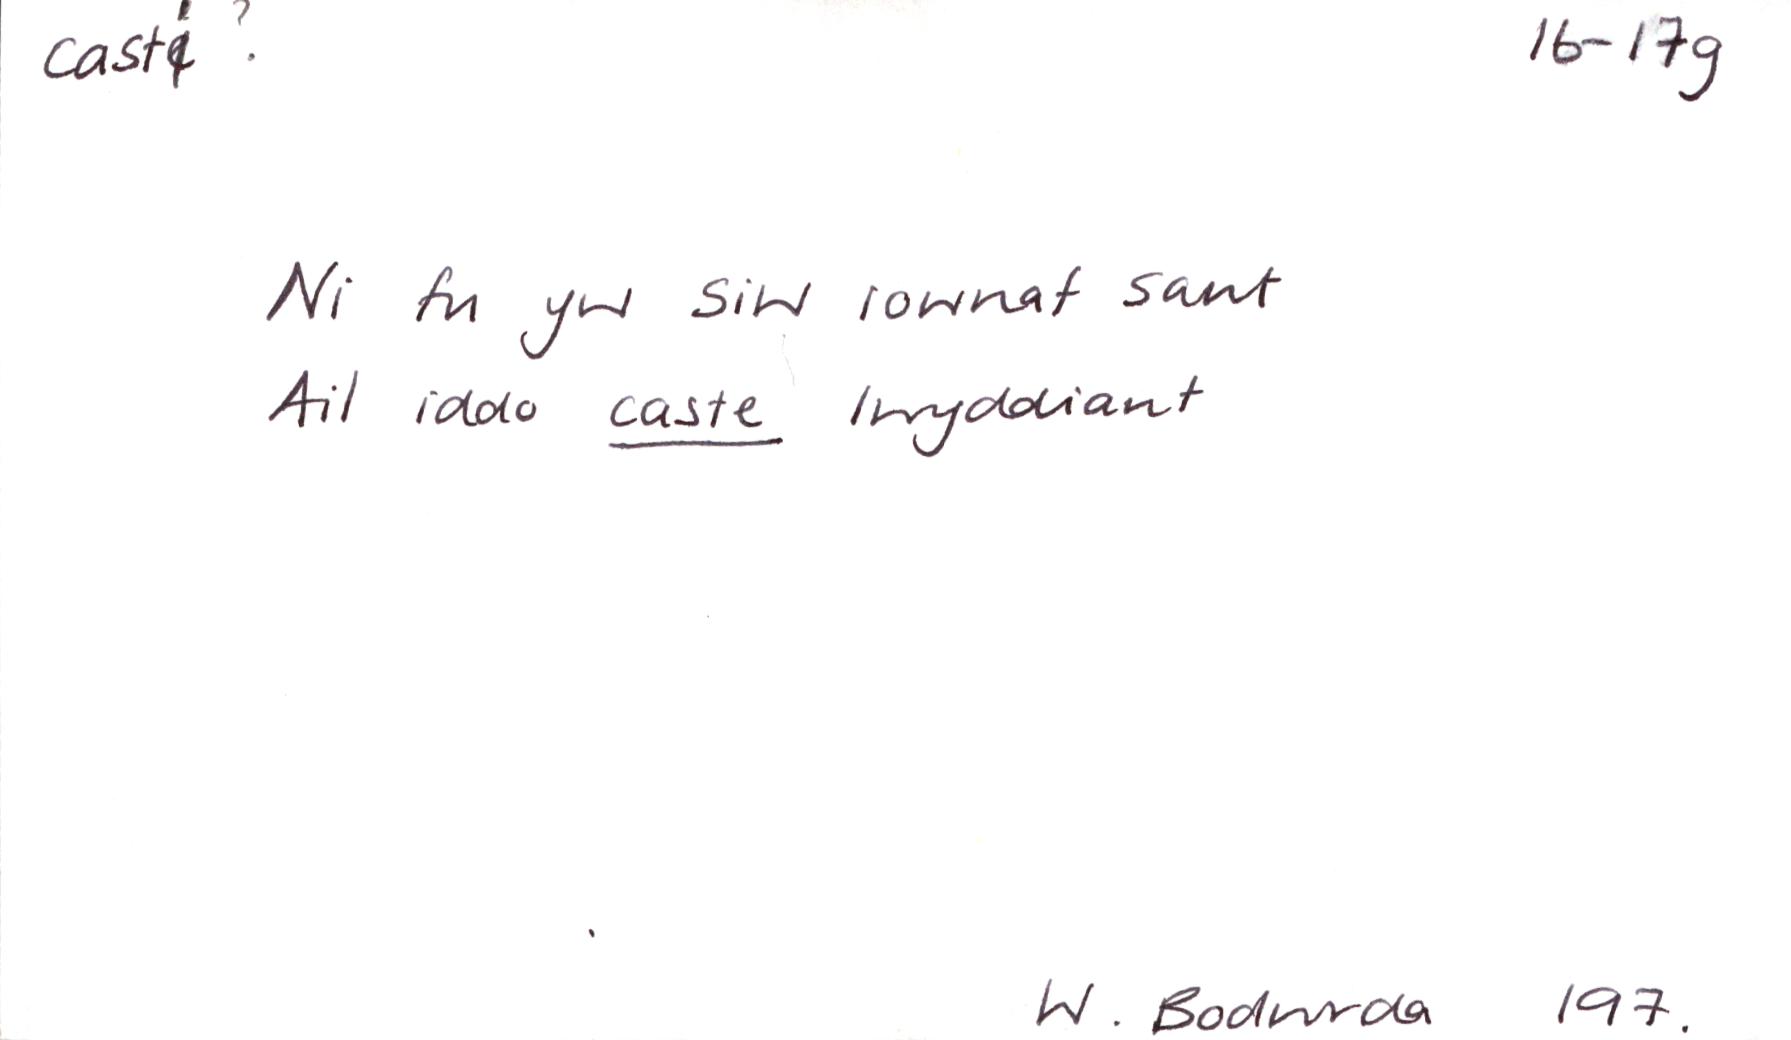 ? 16-17g
Ni fu yw Siw iownaf sant
Ail iddo caste lwyddiant
W. Bodwrda 197.